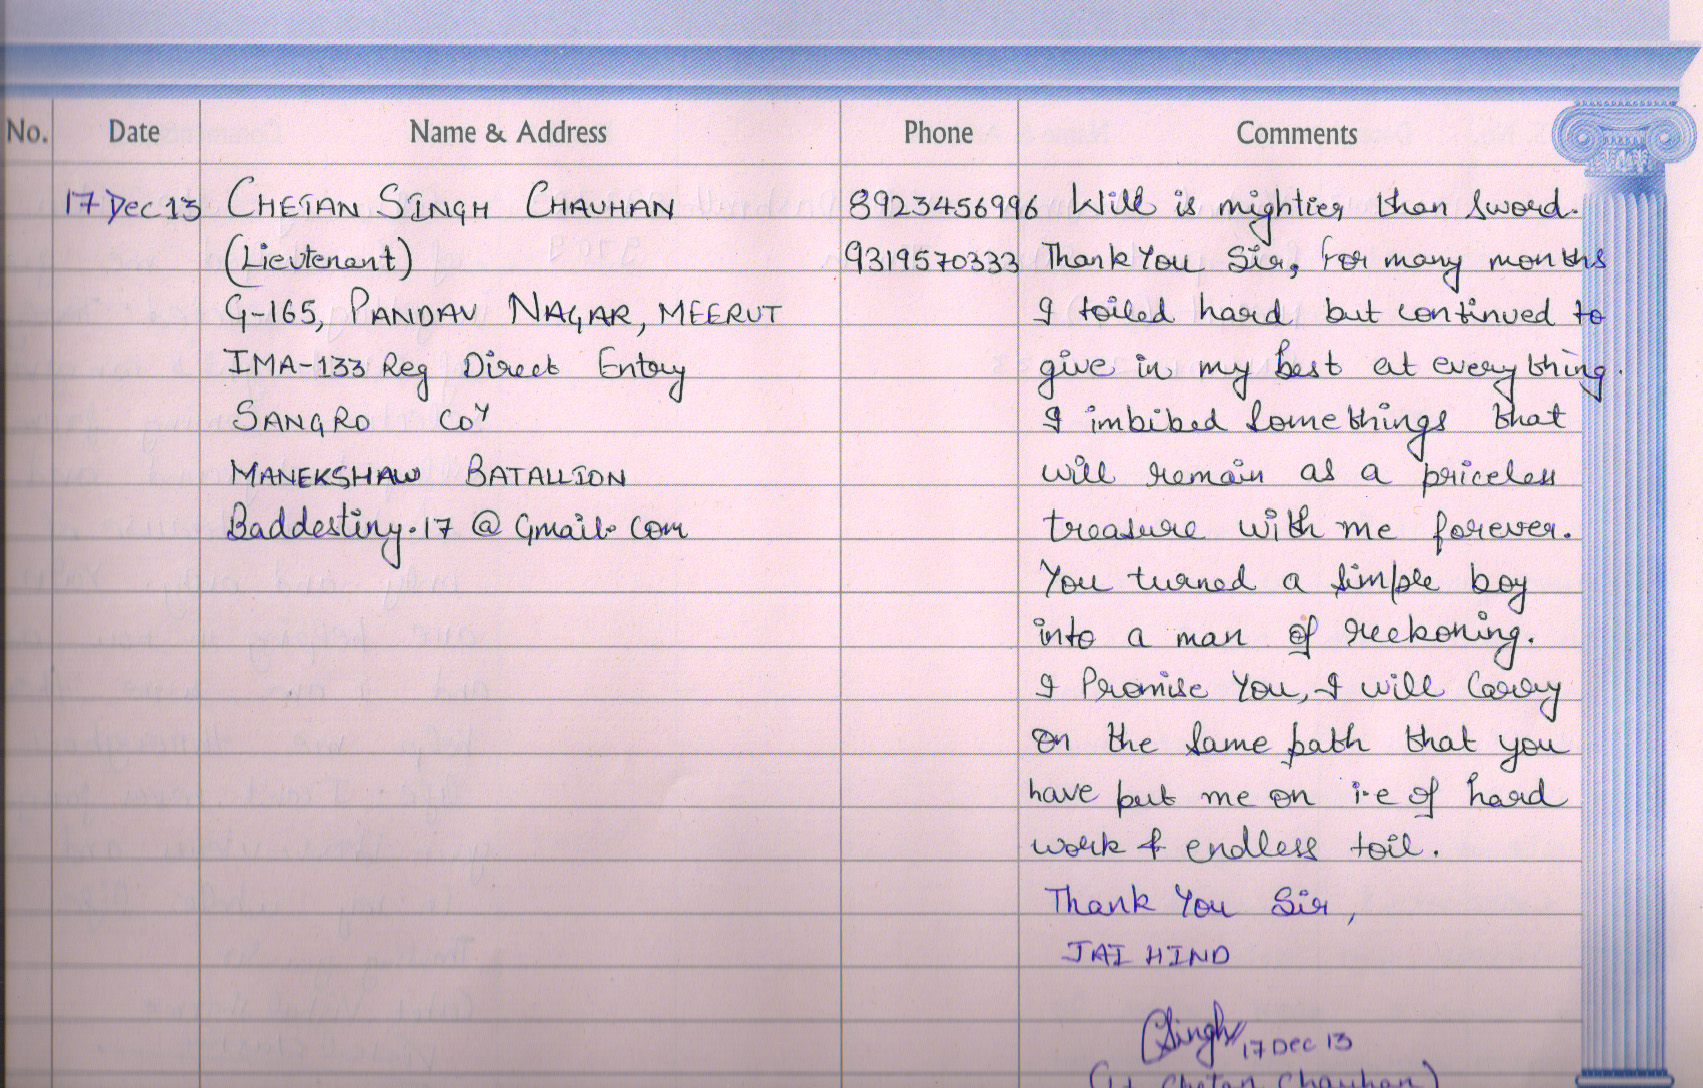 No. Date Name & Address Phone Comments
17 Dec 13 CHETAN SINGH CHAUHAN 8923456996 Will is mightier than Sword.
(Lieutenant) 9319570333 Thank You Sir, For many months
G-165, PANDAV NAGAR, MEERUT I toiled hard but continued to
IMA-133 Reg Direct Entry give in my best at everything.
SANGRO COY I imbibed Some things that
MANEKSHAW BATALLION will remain as a priceless
Baddestiny.17 @ Gmail.Com treasure with me forever.
You turned a simple boy
into a man of reckoning.
I Promise You, I will Carry
on the same path that you
have put me on i.e of hard
work & endless toil.
Thank You Sir,
JAI HIND
CSingh 17 Dec 13
Chetan Chauhan)